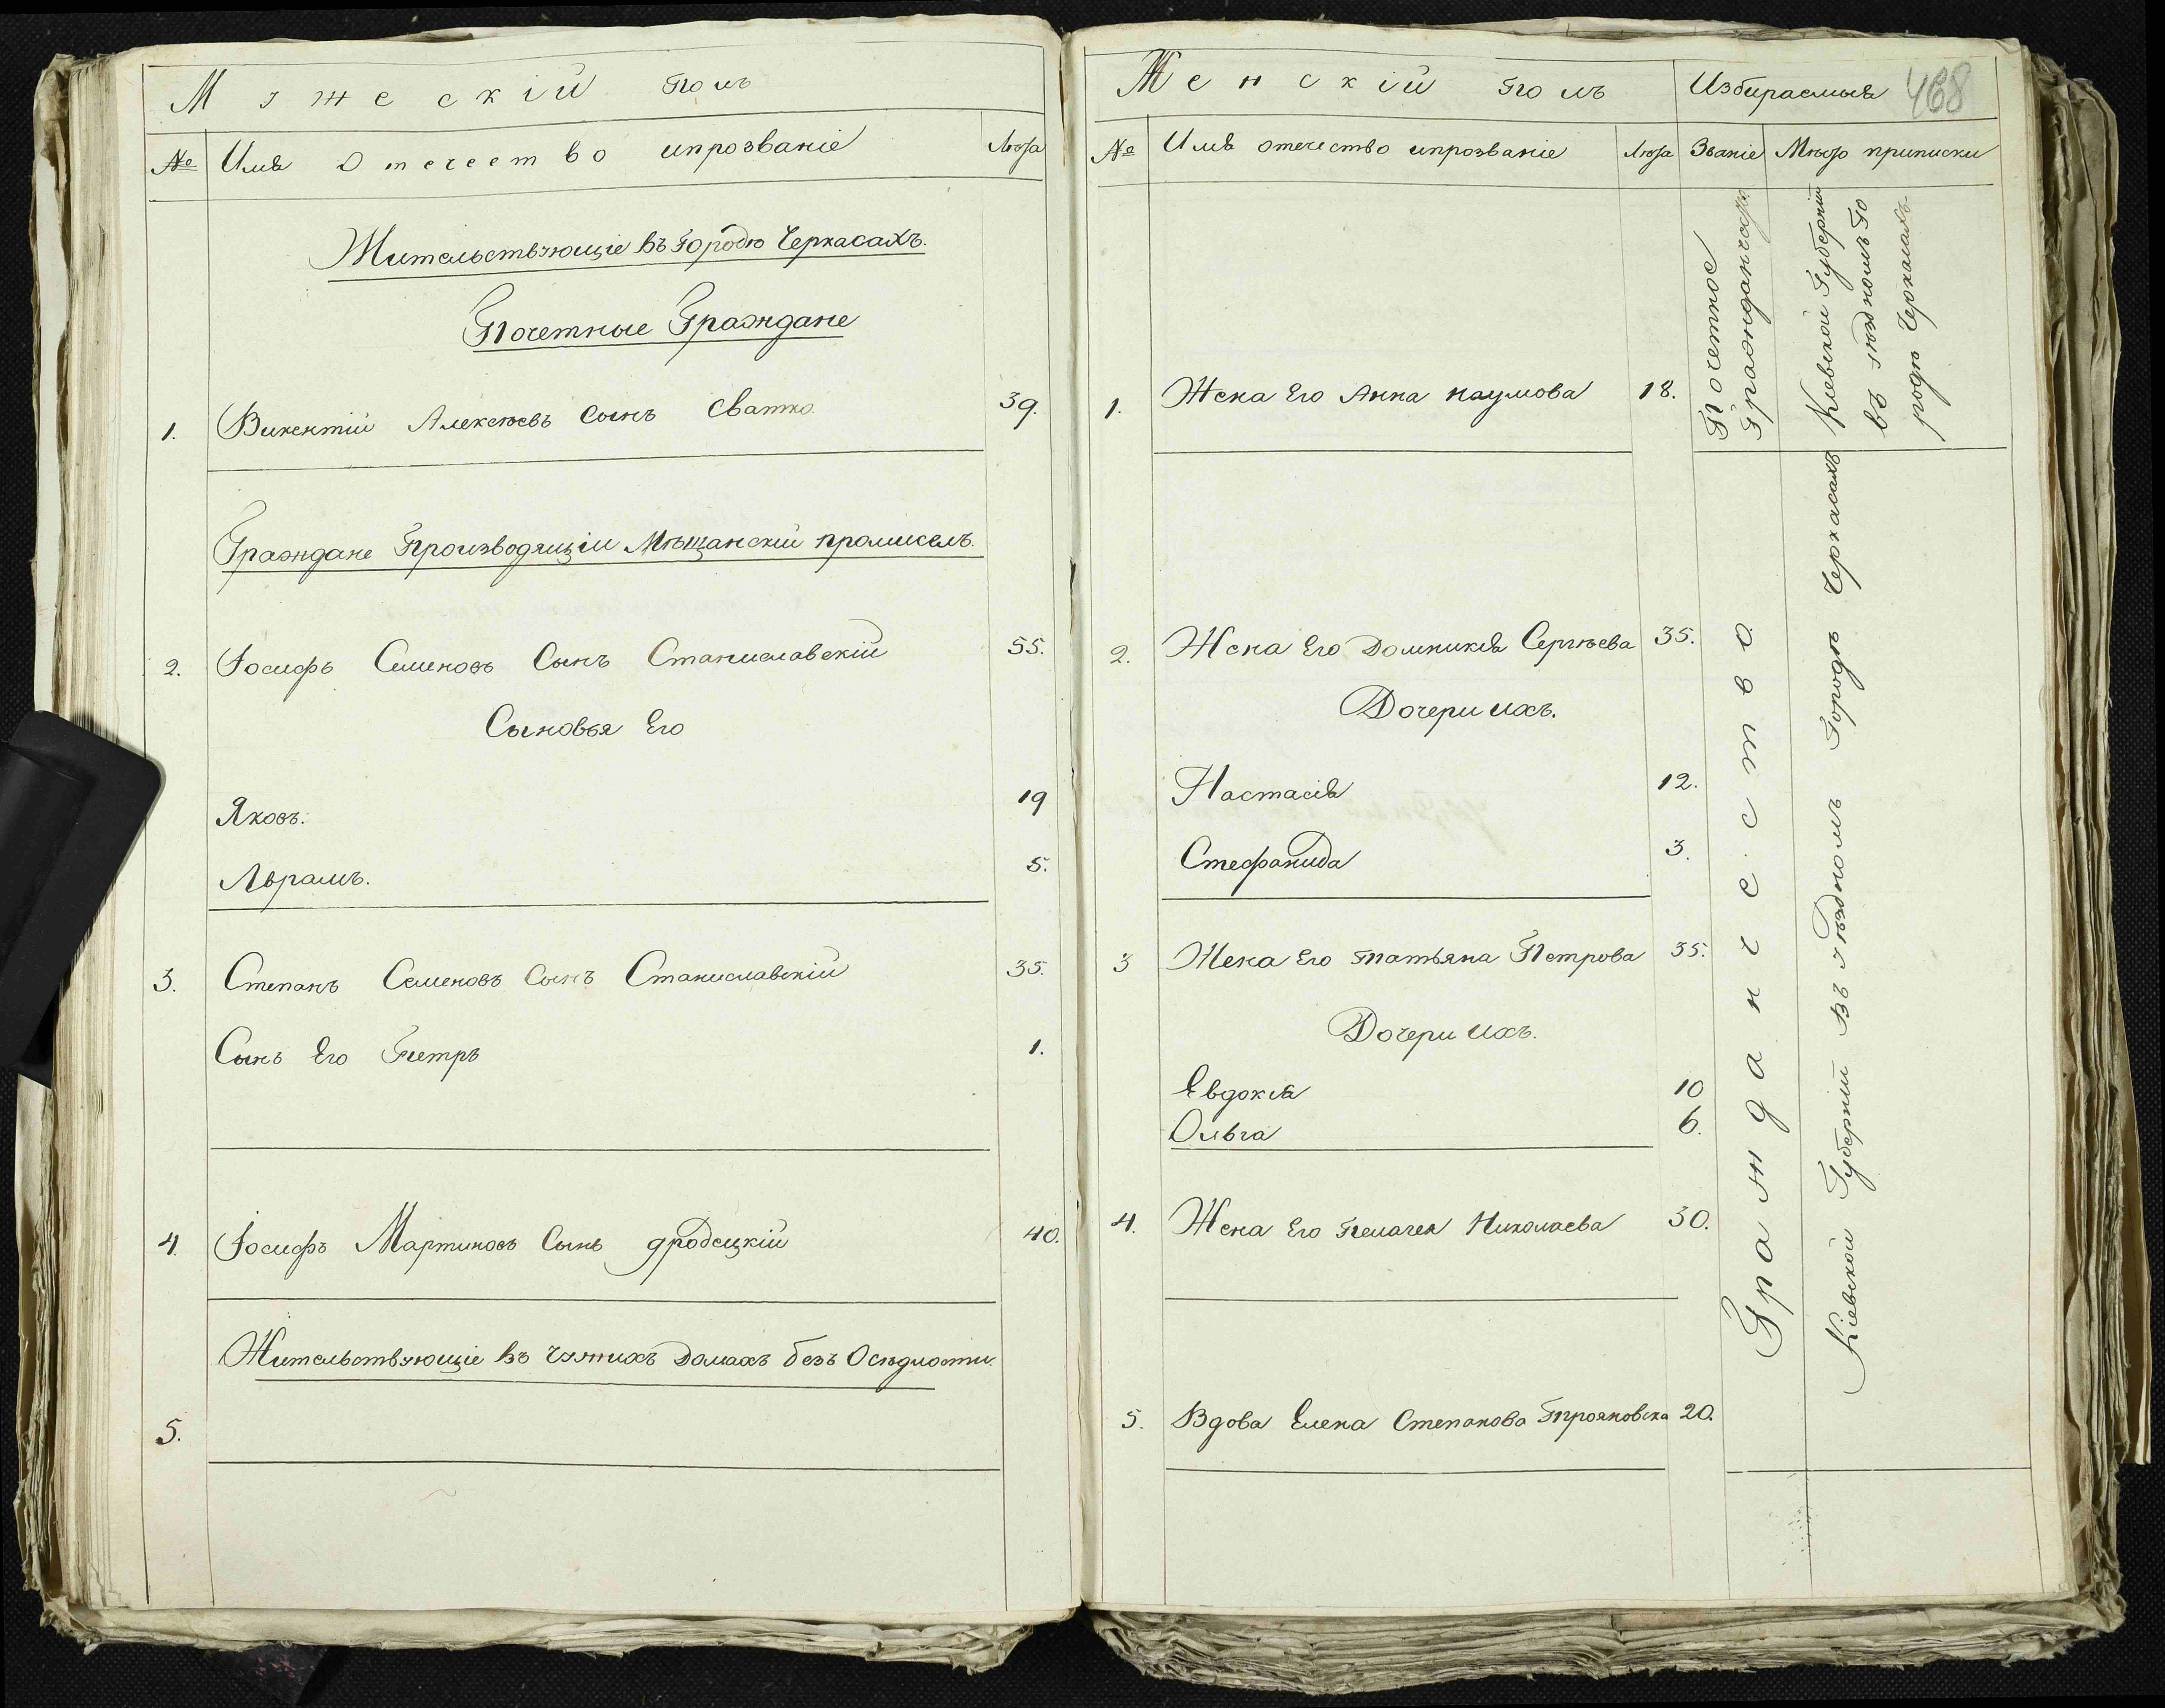 Мужескій полъ
№ Имя Отечество ипрозваніе Лѣта
Жительствующіе въ Городѣ Черкасахъ.
Почетные Граждане
1. Викентій Алексѣевъ Сынъ Сватко. 39.
Граждане Производящіи Мѣщанскій промиселъ.
2. Іосифъ Семеновъ Сынъ Станиславскій 55.
Сыновья Его
Яковъ. 19
Аврамъ. 5.
3. Степанъ Семеновъ Сынъ Станиславскій 35.
Сынъ Его Петръ 1.
4. Іосифъ Мартиновъ Сынъ Гродецкій 40.
Жительствующіе въ чужихъ Домахъ безъ Осѣдлости.
5.
Женскій полъ Избираемыя 468
№ Имя отечество ипрозваніе Лѣта Званіе Мѣсто приписки
1. Жена Его Анна Наумова 18.
2. Жена Его Домникія Сергѣева 35.
Дочери ихъ.
Настасія 12.
Стефанида 3.
3 Жена Его Татьяна Петрова 35.
Дочери ихъ.
Евдокія 10
Ольга 6.
4. Жена Его Пелагея Николаева 30.
5. Вдова Елена Степанова Трояновска 20.
Почетное
Гражданство
Кіевской Губерніи
въ уѣздномъ Го
родѣ Черкасахъ
Гражданство
Кіевской Губерніи Въ уѣздномъ Городѣ Черкасахъ